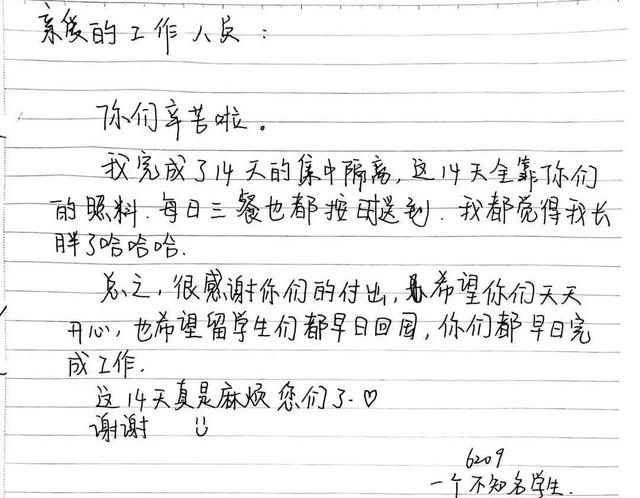 亲爱的工作人员：
你们辛苦啦。
我完成了14天的集中隔离,这14天全靠你们
的照料.每日三餐也都按时送到.我都觉得我长
胖了哈哈哈.
总之,很感谢你们的付出,希望你们天天
开心,也希望留学生们都早日回国,你们都早日完
成工作.
这14天真是麻烦您们了.♡
谢谢 Ü
6209
一个不知名学生.